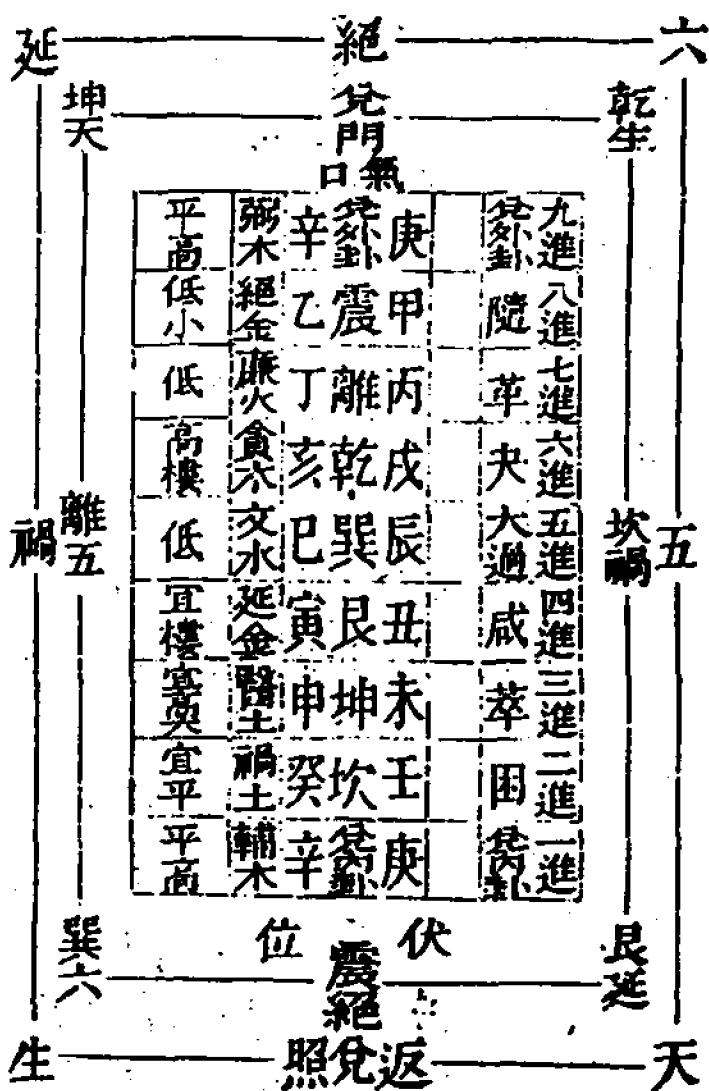 六 絕 延
乾生 兌門 坤天
氣口
九進 兌外卦 庚 兌外卦 辛 弼木 平高
八進 隨 甲 震 乙 絕金 低小
七進 革 丙 離 丁 廉火 低
六進 夬 戌 乾 亥 貪木 高樓
五進 大過 辰 巽 巳 文水 低
四進 咸 丑 艮 寅 延金 宜樓
三進 萃 未 坤 申 醫土
二進 困 壬 坎 癸 禍土 宜平
一進 兌內卦 庚 兌內卦 辛 輔木 平高
五 坎禍 離五 禍
伏位
艮延 震絕 巽六
天 返兌照 生